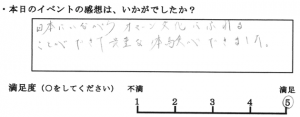 ・本日のイベントの感想は、いかがでしたか？
日本にいながら オマーン文化にふれる
ことができて 貴重な体験ができました。
満足度（○をしてください） 不満 満足
1 2 3 4 5